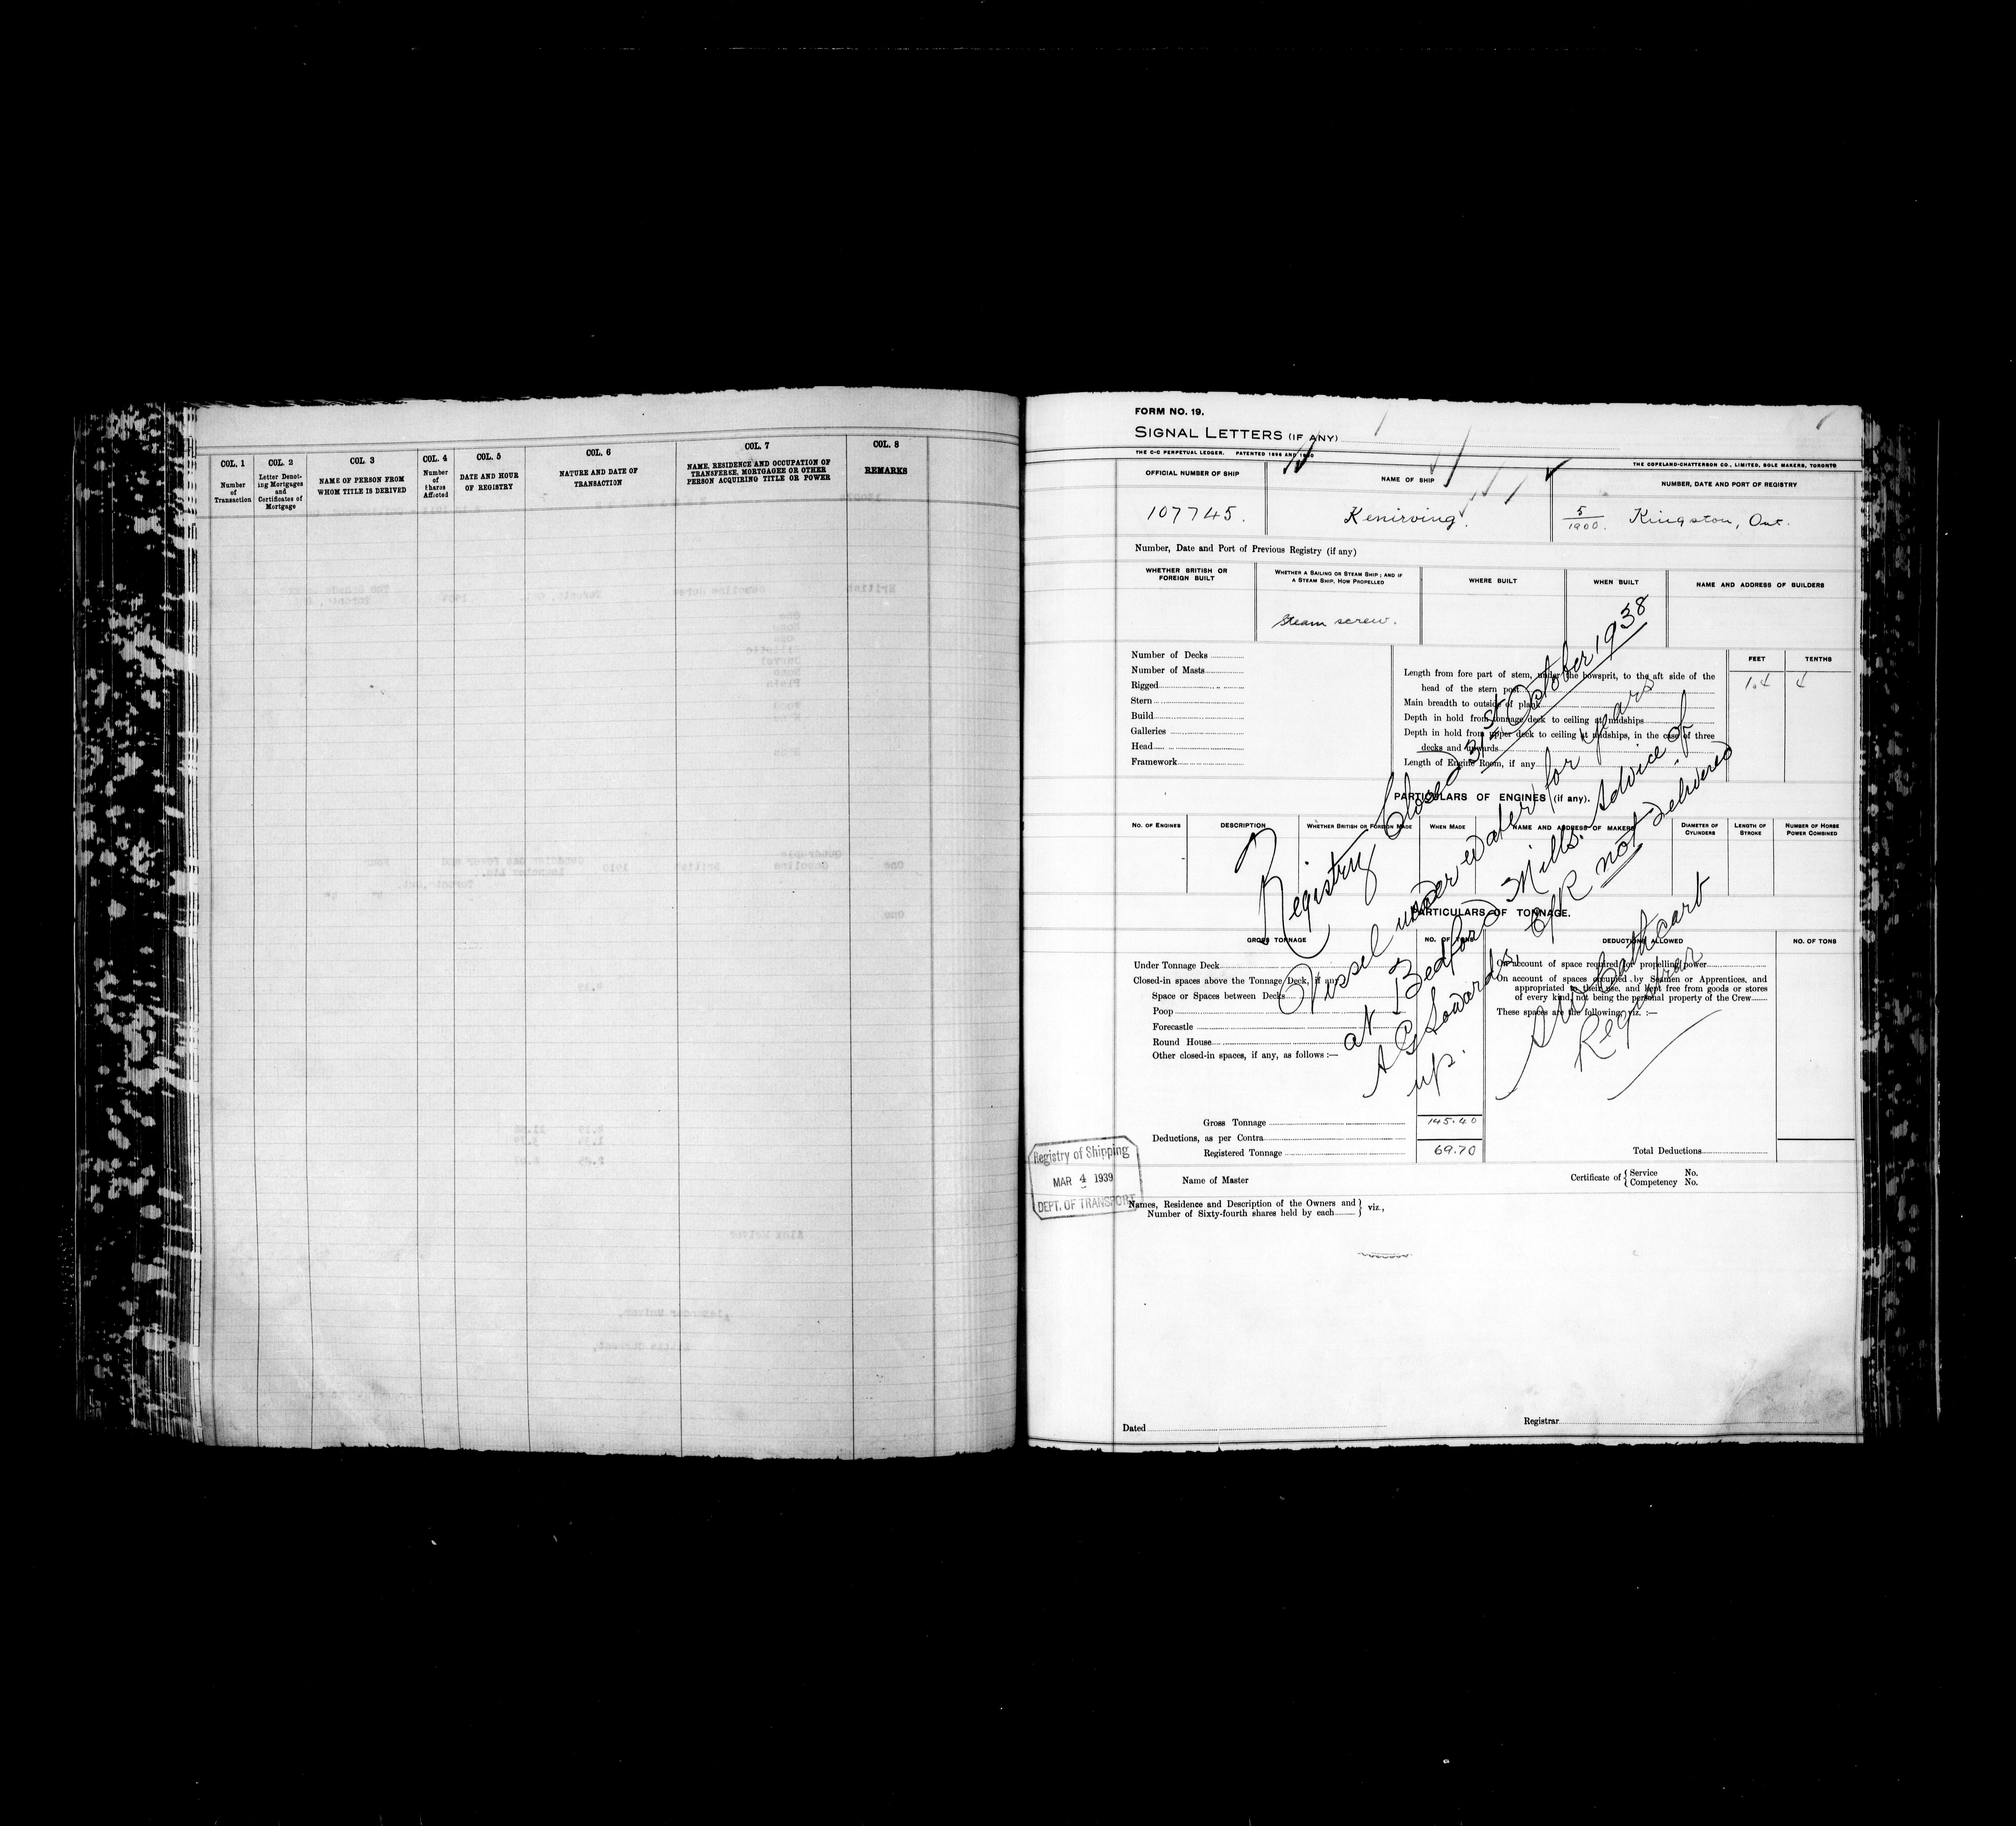 COL. 1
Number
of
Transaction
COL. 2
Letter Denot-
ing Mortgages
and
Certificates of
Mortgage
COL. 3
NAME OF PERSON FROM
WHOM TITLE IS DERIVED
COL. 4
Number
of
Shares
Affected
COL. 5
DATE AND HOUR
OF REGISTRY
COL. 6
NATURE AND DATE OF
TRANSACTION
COL. 7
NAME, RESIDENCE AND OCCUPATION OF
TRANSFEREE, MORTGAGEE OR OTHER
PERSON ACQUIRING TITLE OR POWER
COL. 8
REMARKS
FORM NO. 19.
SIGNAL LETTERS (IF ANY)
THE C-C PERPETUAL LEDGER. PATENTED 1896 AND 1900
THE COPELAND-CHATTERSON CO., LIMITED, SOLE MAKERS, TORONTO
OFFICIAL NUMBER OF SHIP
NAME OF SHIP
NUMBER, DATE AND PORT OF REGISTRY
107745.
Kenirving.
5/1900. Kingston, Ont.
Number, Date and Port of Previous Registry (if any)
WHETHER BRITISH OR
FOREIGN BUILT
WHETHER A SAILING OR STEAM SHIP; AND IF
A STEAM SHIP, HOW PROPELLED
WHERE BUILT
WHEN BUILT
NAME AND ADDRESS OF BUILDERS
Steam screw.
Number of Decks
Number of Masts
Rigged
Stern
Build
Galleries
Head
Framework
FEET
TENTHS
Length from fore part of stem, under the bowsprit, to the aft side of the
head of the stern post
Main breadth to outside of plank
Depth in hold from tonnage deck to ceiling at midships
Depth in hold from upper deck to ceiling at midships, in the case of three
decks and upwards
Length of Engine Room, if any
PARTICULARS OF ENGINES (if any).
No. of Engines
DESCRIPTION
Whether British or Foreign Made
When Made
NAME AND ADDRESS OF MAKERS
DIAMETER OF
CYLINDERS
LENGTH OF
STROKE
NUMBER OF HORSE
POWER COMBINED
Registry Closed 31st October 1938
Vessel under water for years
at Bedford Mills. Advice of
A G Sowards C/R not delivered
up.
Cathcart
Registrar
PARTICULARS OF TONNAGE.
GROSS TONNAGE
NO. OF TONS
DEDUCTIONS ALLOWED
NO. OF TONS
Under Tonnage Deck
Closed-in spaces above the Tonnage Deck, if any
Space or Spaces between Decks
Poop
Forecastle
Round House
Other closed-in spaces, if any, as follows :—
On account of space required for propelling power
On account of spaces occupied by Seamen or Apprentices, and
appropriated to their use, and kept free from goods or stores
of every kind, not being the personal property of the Crew
These spaces are the following, viz. :—
Gross Tonnage 145.40
Deductions, as per Contra
Registered Tonnage 69.70
Total Deductions
Registry of Shipping
MAR 4 1939
DEPT. OF TRANSPORT
Name of Master
Certificate of { Service No.
{ Competency No.
Names, Residence and Description of the Owners and
Number of Sixty-fourth shares held by each } viz.,
Dated
Registrar